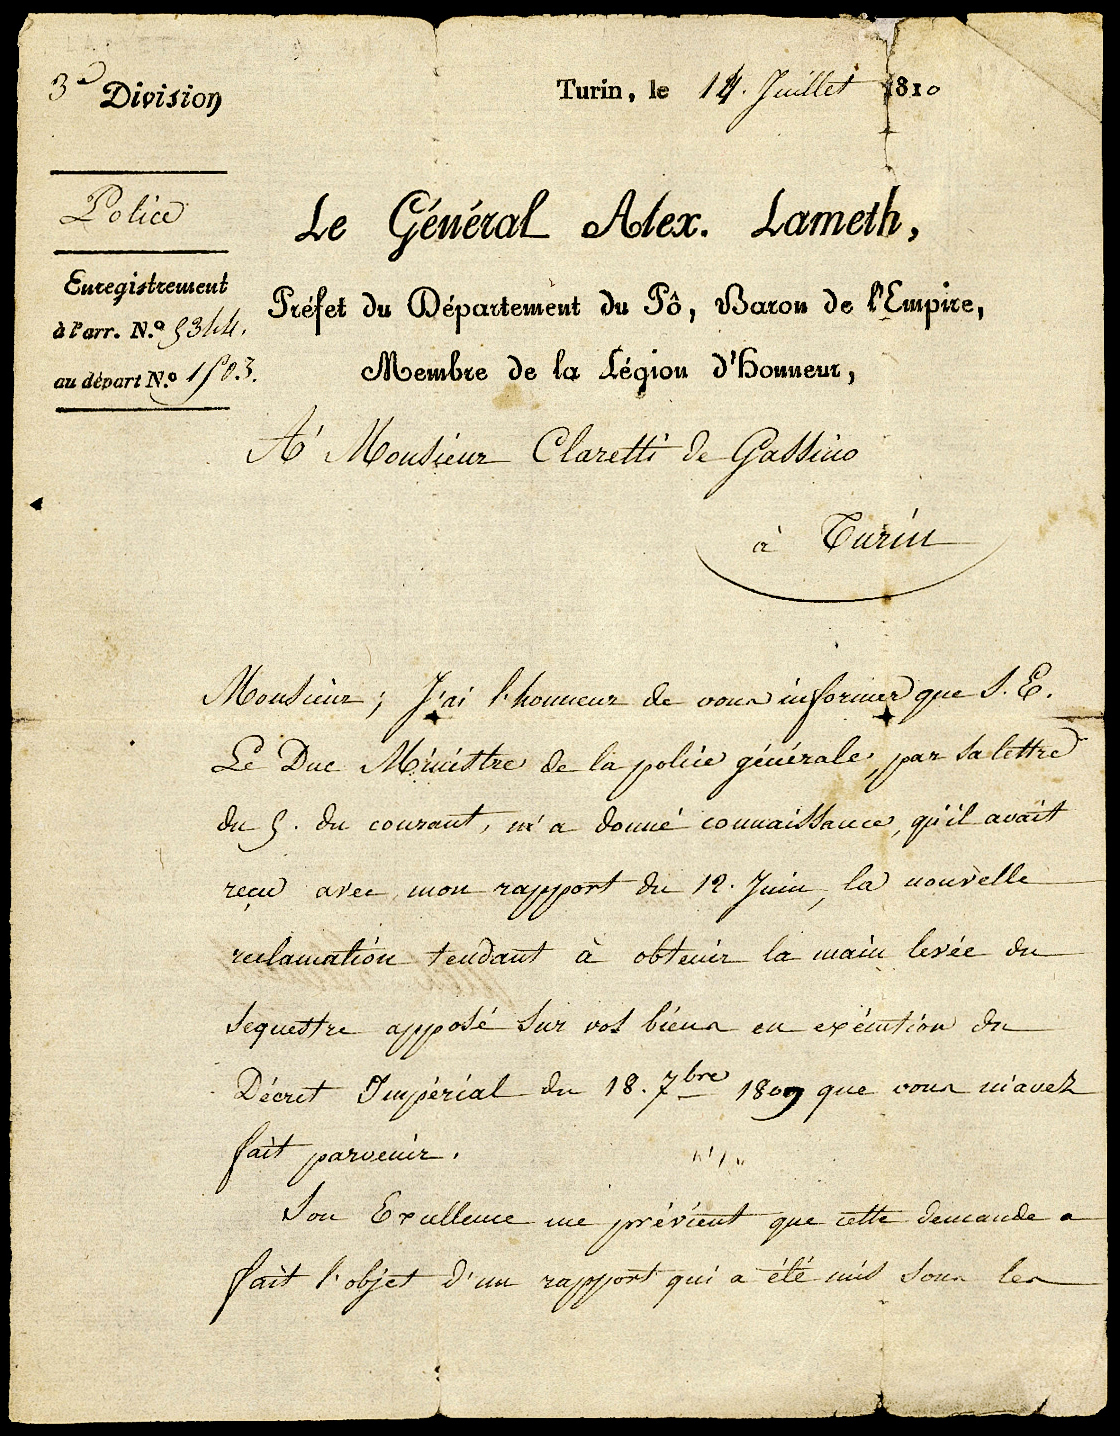 3e Division
Turin, le 14. Juillet 1810
Police
Enregistrement
à l'arr. N.º 5344.
au départ N.º 1503.
Le Général Alex. Lameth,
Préfet du Département du Pô, Baron de l'Empire,
Membre de la Légion d'Honneur,
A' Monsieur Claretti de Gassino
à Turin
Monsieur ; J'ai l'honneur de vous informer que S. E.
Le Duc Ministre de la police générale, par sa lettre
du 5. du courant, m'a donné connaissance, qu'il avait
reçu avec mon rapport du 12. Juin, la nouvelle
reclamation tendant à obtenir la main levée du
sequestre apposé sur vos biens en exécution du
Décret Impérial du 18. 7bre 1809 que vous m'avez
fait parvenir.
Son Excellence me prévient que cette demande a
fait l'objet d'un rapport qui a été mis sous les